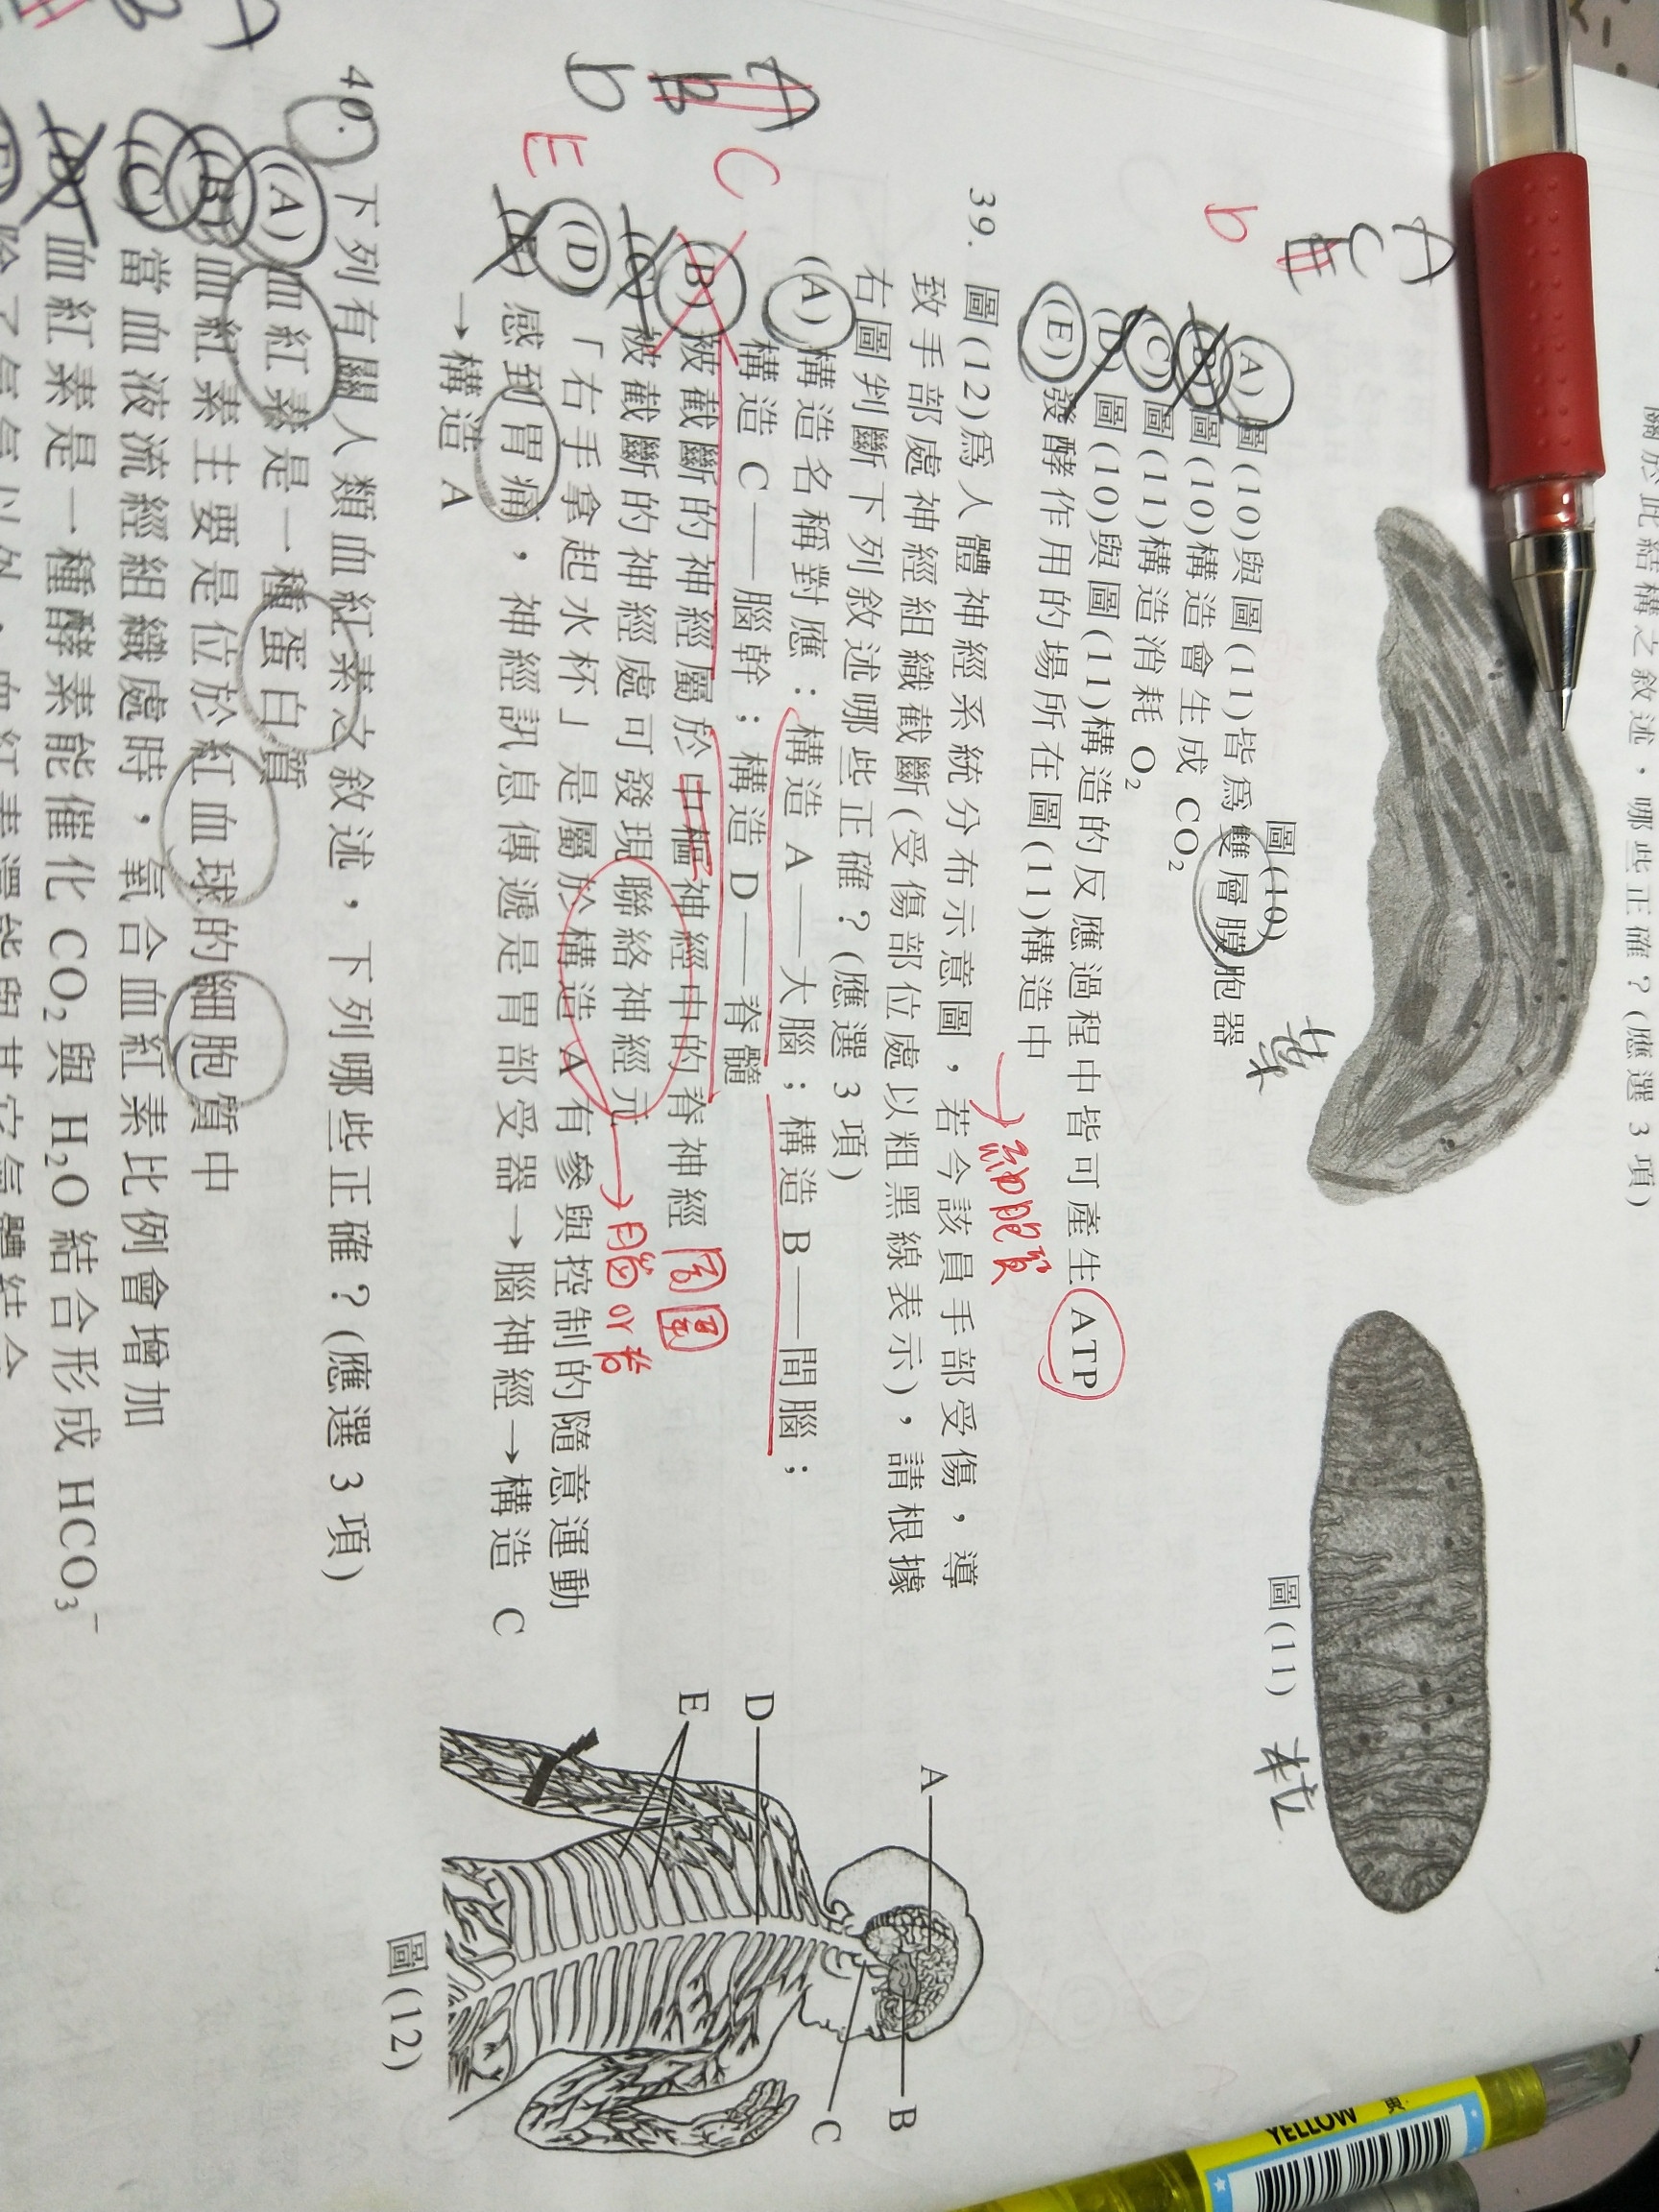 關於此結構之敘述，哪些正確？(應選 3 項)
圖(10)
葉
圖(11)
粒
A
C
E
D
(A) 圖(10)與圖(11)皆為雙層膜胞器
(B) 圖(10)構造會生成 CO₂
(C) 圖(11)構造消耗 O₂
(D) 圖(10)與圖(11)構造的反應過程中皆可產生 ATP
(E) 發酵作用的場所在圖(11)構造中
細胞質
39. 圖(12)為人體神經系統分布示意圖，若今該員手部受傷，導
致手部處神經組織截斷(受傷部位處以粗黑線表示)，請根據
右圖判斷下列敘述哪些正確？(應選 3 項)
(A) 構造名稱對應：構造 A——大腦；構造 B——間腦；
構造 C——腦幹；構造 D——脊髓
(B) 被截斷的神經屬於中樞神經中的脊神經 周圍
(C) 被截斷的神經處可發現聯絡神經元 → 腦 or 脊
(D) 「右手拿起水杯」是屬於構造 A 有參與控制的隨意運動
(E) 感到胃痛，神經訊息傳遞是胃部受器→腦神經→構造 C
→構造 A
A
B
C
D
E
A
B
C
D
E
圖(12)
40. 下列有關人類血紅素之敘述，下列哪些正確？(應選 3 項)
(A) 血紅素是一種蛋白質
(B) 血紅素主要是位於紅血球的細胞質中
(C) 當血液流經組織處時，氧合血紅素比例會增加
(D) 血紅素是一種酵素能催化 CO₂ 與 H₂O 結合形成 HCO₃⁻
A
B
YELLOW